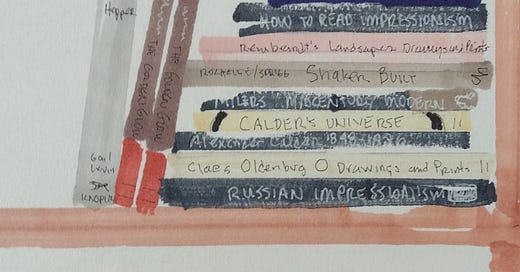 Hopper
Gail
Levin
KNOPF
THE
THE
HOW TO READ IMPRESSIONISM
Rembrandt's Landscapes Drawings and Prints
ROCHELEAU/SPRIGG SHAKER BUILT
MILLER'S MIDCENTURY MODERN
CALDER'S UNIVERSE
Alexander Calder 1898-1976
Claes Oldenburg Drawings and Prints
RUSSIAN IMPRESSIONISM